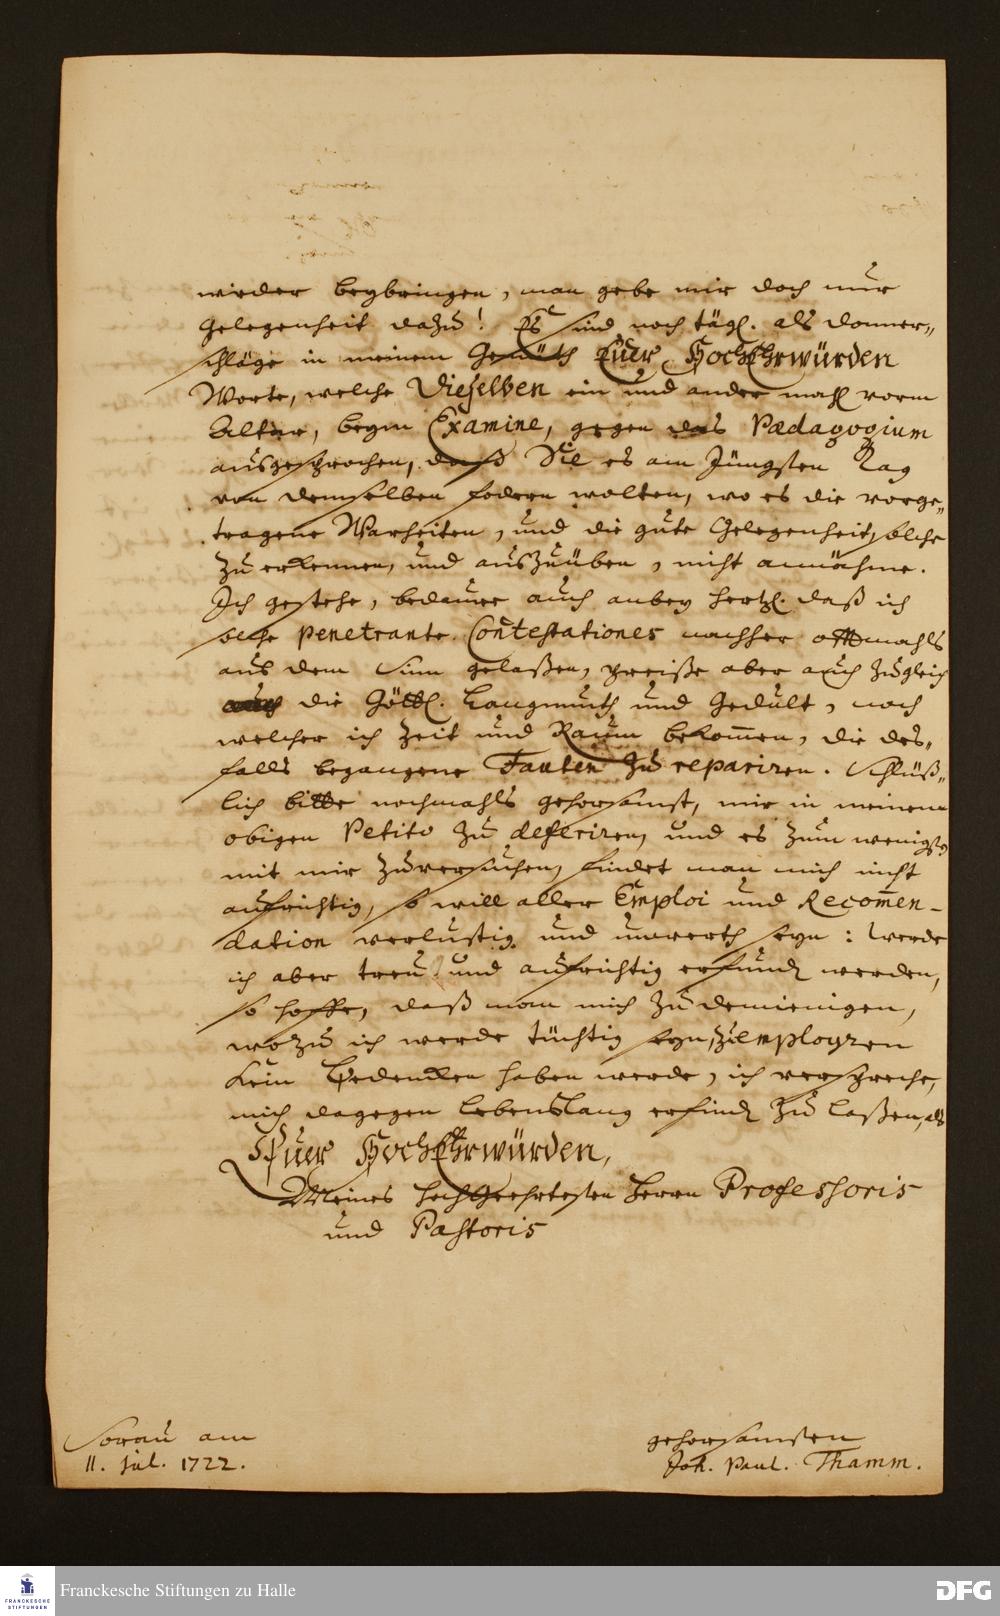 wieder beybringen, man gebe mir doch nur
Gelegenheit dazu! Es sind noch tägl. als donner„
schläge in meinem Gemüth Euer HochEhrwürden
Worte, welche Dieselben ein und ander mahl vorm
Altar, beym Examine, gegen das Pædagogium
ausgesprochen, daß Sie es am Jüngsten Tag
von demselben fodern wolten, wo es die vorge„
tragene Warheiten, und die gute Gelegenheit, solche
zu erkennen, und auszuüben, nicht annähme.
Ich gestehe, bedaure auch anbey hertzl. daß ich
solche penetrante Contestationes nachher offtmahls
aus dem Sinn gelaßen, preiße aber auch zugleich
die Göttl. Langmuth und Gedult, nach
welcher ich Zeit und Raum bekom̄en, die des„
falls begangene Fauten zu repariren. Schlüß„
lich bitte nochmahls gehorsamst, mir in meinem
obigen Petito zu deferiren, und es zum wenigsten
mit mir zuversuchen, findet man mich nicht
aufrichtig, so will aller Emploi und Recom̄en-
dation verlustig und unwerth seyn: werde
ich aber treu und aufrichtig erfunden werden,
so hoffe, daß man mich zu demienigen,
wozu ich werde tüchtig seyn, zu employren
kein Bedencken haben werde, ich verspreche,
mich dagegen lebenslang erfinden zu laßen, als
Euer HochEhrwürden,
Meines HochGeehrtesten Herrn Professoris
und Pastoris
Sorau am
11. Jul. 1722.
gehorsamsten
Joh. Paul. Thamm.
Franckesche Stiftungen zu Halle
FRANCKESCHE
STIFTUNGEN
DFG